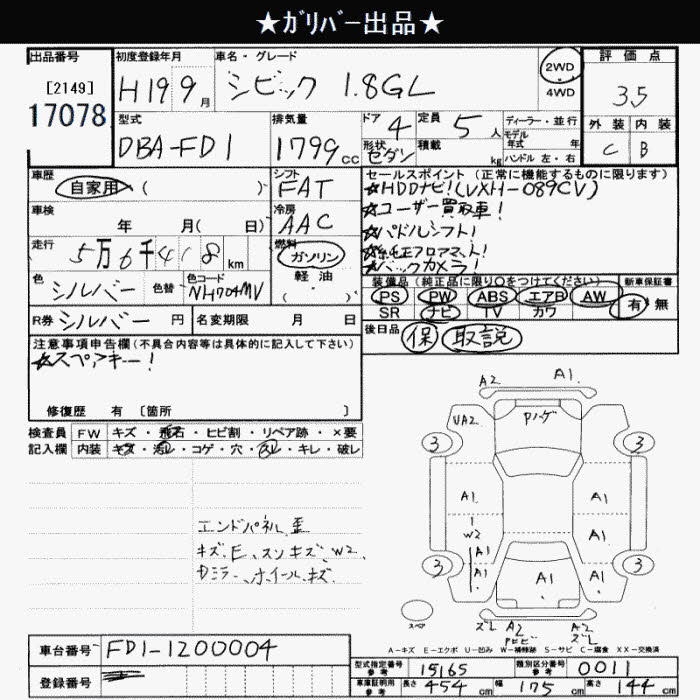 ★ｶﾞﾘﾊﾞｰ出品★
出品番号
[2149]
17078
初度登録年月
H19 9月
車名・グレード
シビック 1.8GL
2WD
4WD
評価点
3.5
外装 内装
C B
型式
DBA-FD1
排気量
1799cc
ドア 4
形状 セダン
定員 5人
積載 kg
ディーラー・並行
モデル年式 年
ハンドル 左・右
車歴
自家用 ( )
シフト
FAT
車検
年 月( 日)
冷房
AAC
走行
5万6千418km
燃料
ガソリン
軽油
( )
色
シルバー
色替
色コード
NH704MV
R券 シルバー 円
名変期限 月 日
セールスポイント(正常に機能するものに限ります)
★HDDナビ!(VXH-089CV)
★ユーザー買取車!
★パドルシフト!
★純正フロアマット!
★バックカメラ!
装備品(純正品に限り○をつけてください)
PS PW ABS エアB AW
SR ナビ TV カワ
新車保証書
有・無
後日品
保 取説
注意事項申告欄(不具合内容等は具体的に記入して下さい)
★スペアキー!
修復歴 有 [箇所 ]
検査員 FW キズ・飛石・ヒビ割・リペア跡・×要
記入欄 内装 キズ・汚レ・コゲ・穴・スレ・キレ・破レ
エンドパネル歪
キズ、E、スソキズ、W2、
ミラー、ホイールキズ
A2 A1
UA2 Pハゲ
3 3
A1 A1
W2 A1
A1
A1 A1 A1
3 3
スペア
ズレ A2 A2
ズレ
A-キズ E-エクボ U-凹み W-補修跡 S-サビ C-腐食 XX-交換済
車台番号 FD1-1200004
登録番号
型式指定番号 参考 15165
類別区分番号 参考 0011
車庫証明用 参考 長さ 454cm 幅 175cm 高さ 144cm